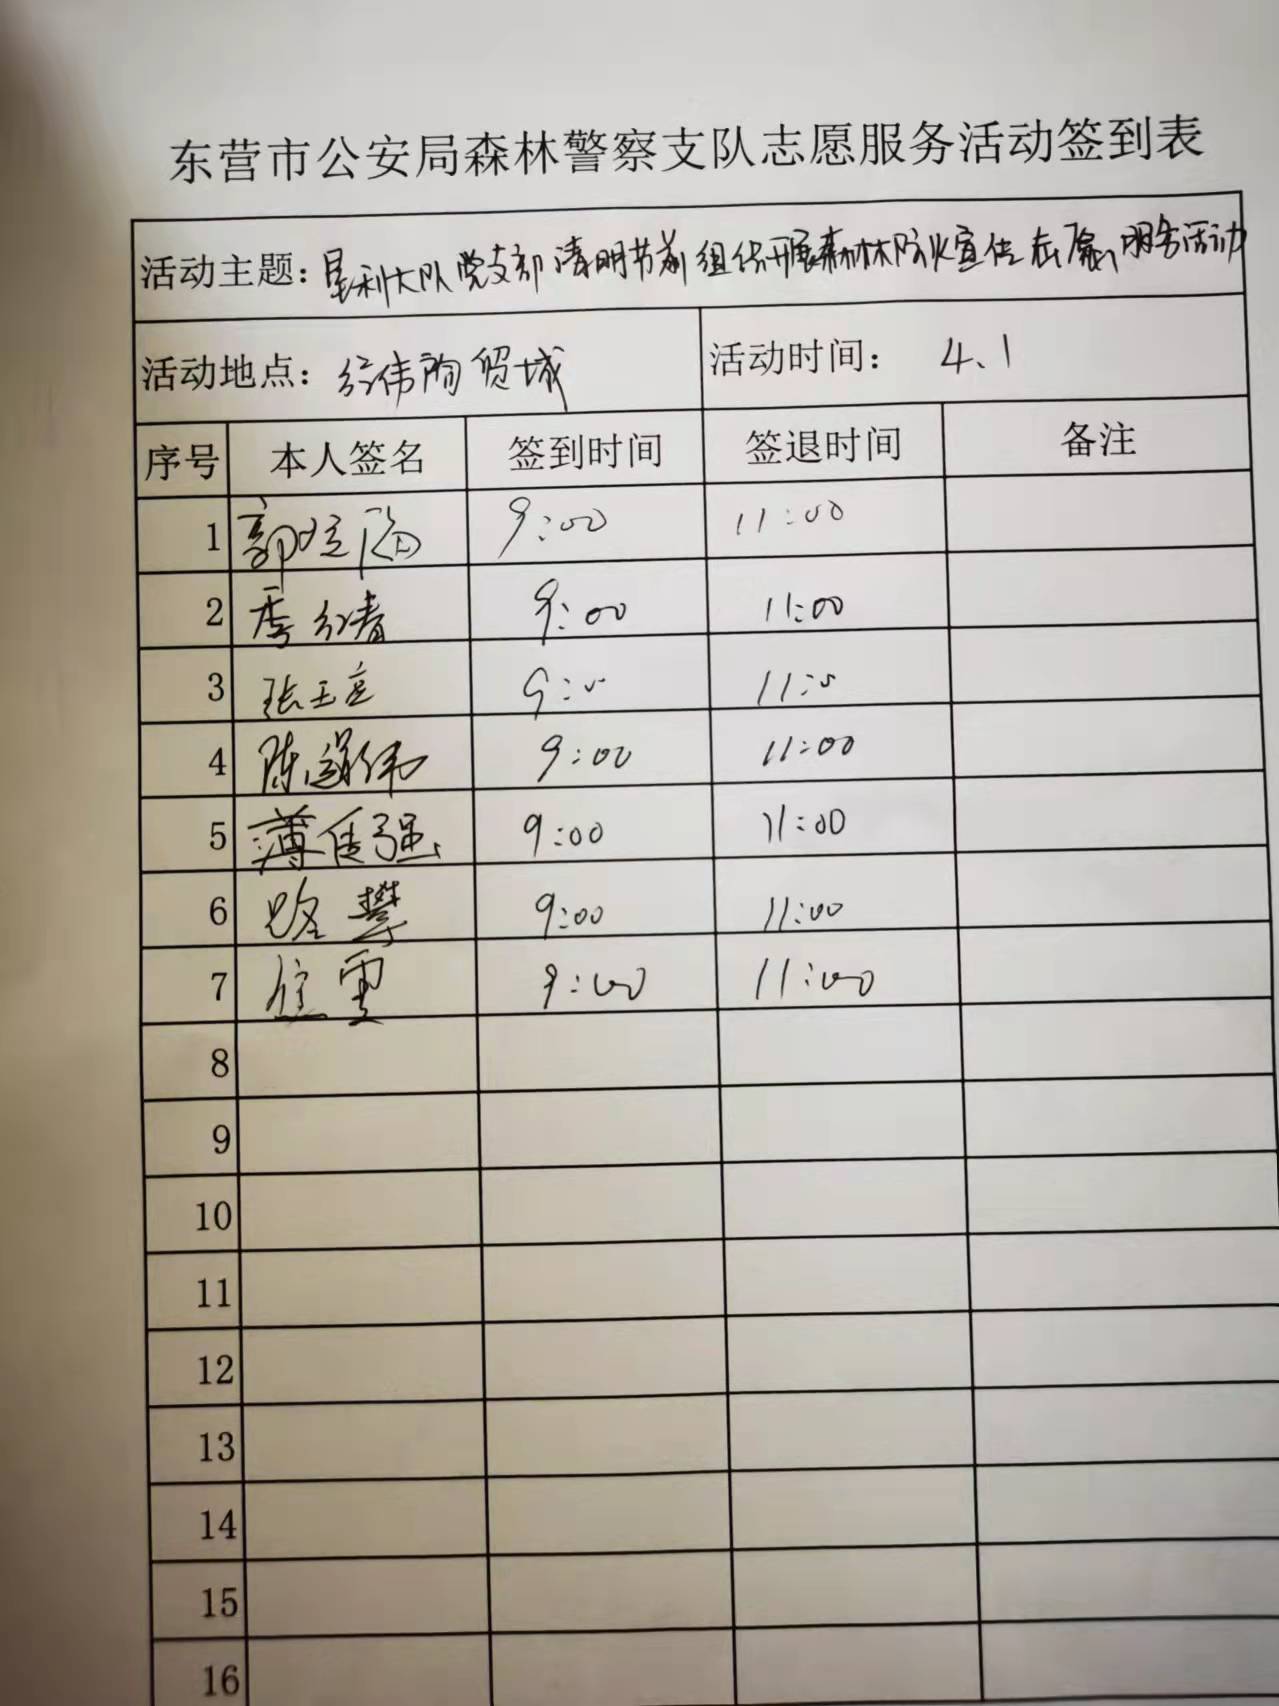 东营市公安局森林警察支队志愿服务活动签到表
活动主题：垦利大队党支部清明节前组织开展森林防火宣传志愿服务活动
活动地点：经伟商贸城 活动时间： 4.1
序号 本人签名 签到时间 签退时间 备注
1 郭 9:00 11:00
2 季红青 9:00 11:00
3 张玉 9:00 11:00
4 陈道伟 9:00 11:00
5 薄佳强 9:00 11:00
6 路攀 9:00 11:00
7 焦雪 9:00 11:00
8
9
10
11
12
13
14
15
16